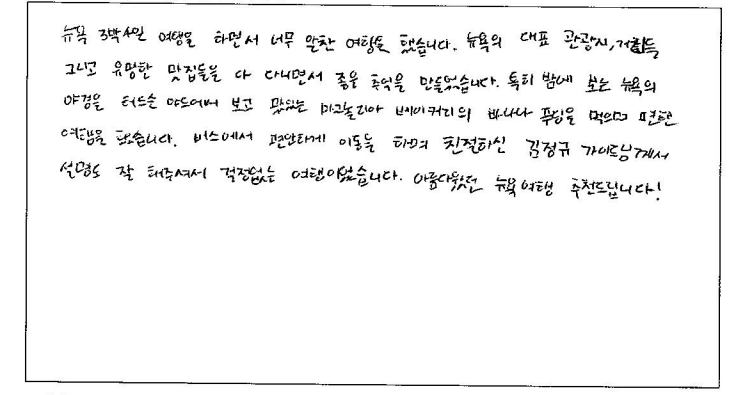 뉴욕 3박4일 여행을 하면서 너무 알찬 여행을 했습니다. 뉴욕의 대표 관광지, 거리들
그리고 유명한 맛집들을 다 다니면서 좋은 추억을 만들었습니다. 특히 밤에 보는 뉴욕의
야경을 허드슨 야드에서 보고 맛있는 매그놀리아 베이커리의 바나나 푸딩을 먹으며 편한
여행을 했습니다. 버스에서 편안하게 이동을 하며 친절하신 김정규 가이드님께서
설명도 잘 해주셔서 걱정없는 여행이었습니다. 아름다웠던 뉴욕여행 추천드립니다!